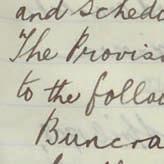 and Schedu
The Provisi
to the follo
Buncra